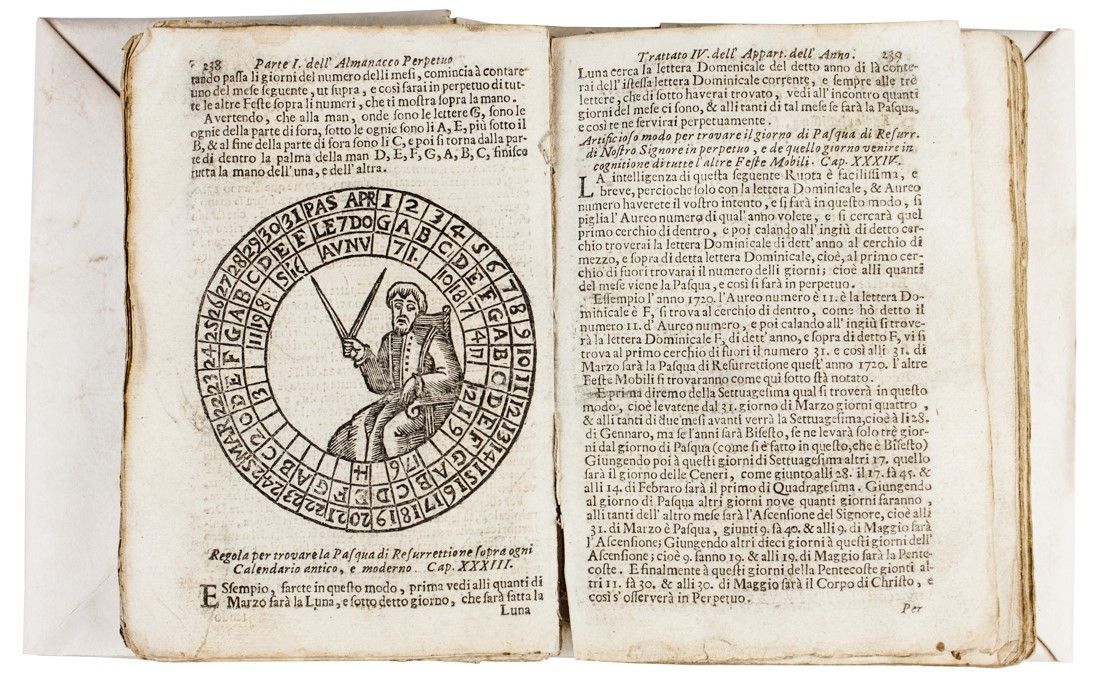 238 Parte I. dell' Almanacco Perpetuo
tando passa li giorni del numero delli mesi, comincia à contare
uno del mese seguente, ut supra, e così sarai in perpetuo di tut-
te le altre Feste sopra li numeri, che ti mostra sopra la mano.
Avertendo, che alla man, onde sono le lettere G, sono le
ognie della parte di fora, sotto le ognie sono li A, E, più sotto il
B, & al fine della parte di fora sono li C, e poi si torna dalla par-
te di dentro la palma della man D, E, F, G, A, B, C, finisco
tutta la mano dell' una, e dell' altra.
PAS APR 1 2 3 4 5 6 7 8 9 10 11 12 13 14 15 16 17 18 19 20 21 22 23 24 25 MAR 22 23 24 25 26 27 28 29 30 31
LE7DO G A B C D E F G A B C D E F G A B C D
AVNU
Regola per trovare la Pasqua di Resurrettione sopra ogni
Calendario antico, e moderno. Cap. XXXIII.
ESsempio, farete in questo modo, prima vedi alli quanti di
Marzo sarà la Luna, e sotto detto giorno, che sarà fatta la
Luna
Trattato IV. dell' Appart. dell' Anno. 239
Luna cerca la lettera Domenicale del detto anno di là conte-
rai dell' istessa lettera Dominicale corrente, e sempre alle trè
lettere, che di sotto haverai trovato, vedi all' incontro quanti
giorni del mese ci sono, & alli tanti di tal mese se sarà la Pasqua,
e così te ne servirai perpetuamente.
Artificioso modo per trovare il giorno di Pasqua di Resurr.
di Nostro Signore in perpetuo, e de quello giorno venire in
cognitione di tutte l' altre Feste Mobili. Cap. XXXIV.
LA intelligenza di questa seguente Ruota è facilissima, e
breve, percioche solo con la lettera Dominicale, & Aureo
numero haverete il vostro intento, e si farà in questo modo, si
piglia l' Aureo numero di qual' anno volete, e si cercarà quel
primo cerchio di dentro, e poi calando all' ingiù di detto cer-
chio troverai la lettera Dominicale di dett' anno al cerchio di
mezzo, e sopra di detta lettera Dominicale, cioè, al primo cer-
chio di fuori trovarai il numero delli giorni; cioè alli quanti
del mese viene la Pasqua, e così si farà in perpetuo.
Essempio l' anno 1720. l' Aureo numero è 11. è la lettera Do-
minicale è F, si trova al cerchio di dentro, come hò detto il
numero 11. d' Aureo numero, e poi calando all' ingiù si trove-
rà la lettera Dominicale F, di dett' anno, e sopra di detto F, vi si
trova al primo cerchio di fuori il numero 31. e così alli 31. di
Marzo sarà la Pasqua di Resurrettione quest' anno 1720. l' altre
Feste Mobili si trovaranno come quì sotto stà notato.
E prima diremo della Settuagesima qual si troverà in questo
modo, cioè levatene dal 31. giorno di Marzo giorni quattro,
& alli tanti di due mesi avanti verrà la Settuagesima, cioè à li 28.
di Gennaro, ma se l' anni sarà Bisesto, se ne levarà solo trè gior-
ni dal giorno di Pasqua (come si è fatto in questo, che è Bisesto)
Giungendo poi à questi giorni di Settuagesima altri 17. quello
sarà il giorno delle Ceneri, come giunto alli 28. il 17. fà 45. &
alli 14. di Febraro sarà il primo di Quadragesima. Giungendo
al giorno di Pasqua altri giorni nove quanti giorni saranno,
alli tanti dell' altro mese sarà l' Ascensione del Signore, cioè alli
31. di Marzo è Pasqua, giunti 9. fà 40. & alli 9. di Maggio sarà
l' Ascensione; Giungendo altri dieci giorni à questi giorni dell'
Ascensione; cioè 9. fanno 19. & alli 19. di Maggio sarà la Pente-
coste. E finalmente à questi giorni della Pentecoste gionti al-
tri 11. fà 30. & alli 30. di Maggio sarà il Corpo di Christo, e
così s' osserverà in Perpetuo.
Per